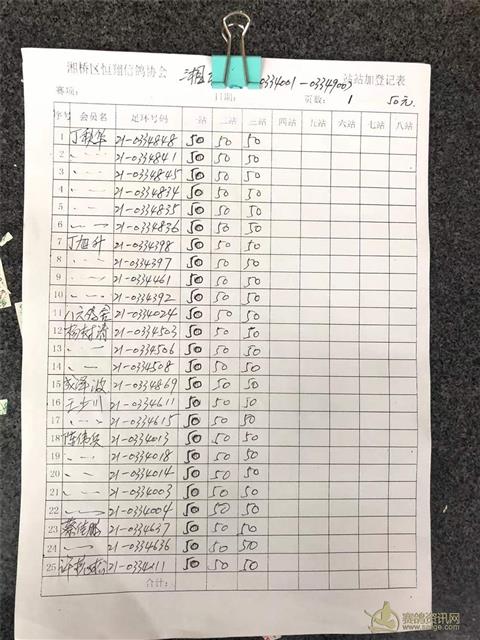 湘桥区恒翔信鸽协会 湘 0334001-0334900 站站加登记表
赛项: 日期: 页数: 1 50元
序号 会员名 足环号码 一站 二站 三站 四站 五站 六站 七站 八站
1 丁 21-0334848 50 50 50
2 21-0334841 50 50 50
3 21-0334845 50 50 50
4 21-0334834 50 50 50
5 21-0334835 50 50 50
6 21-0334836 50 50 50
7 丁旭升 21-0334398 50 50 50
8 21-0334397 50 50 50
9 21-0334461 50 50 50
10 21-0334392 50 50 50
11 21-0334024 50 50 50
12 杨 21-0334503 50 50 50
13 21-0334506 50 50 50
14 21-0334508 50 50 50
15 21-0334869 50 50 50
16 21-0334611 50 50 50
17 21-0334615 50 50 50
18 陈伟 21-0334013 50 50 50
19 21-0334018 50 50 50
20 21-0334014 50 50 50
21 21-0334003 50 50 50
22 21-0334004 50 50 50
23 蔡佳鹏 21-0334637 50 50 50
24 21-0334636 50 50 50
25 许 21-0334211 50 50 50
合计:
赛鸽资讯网